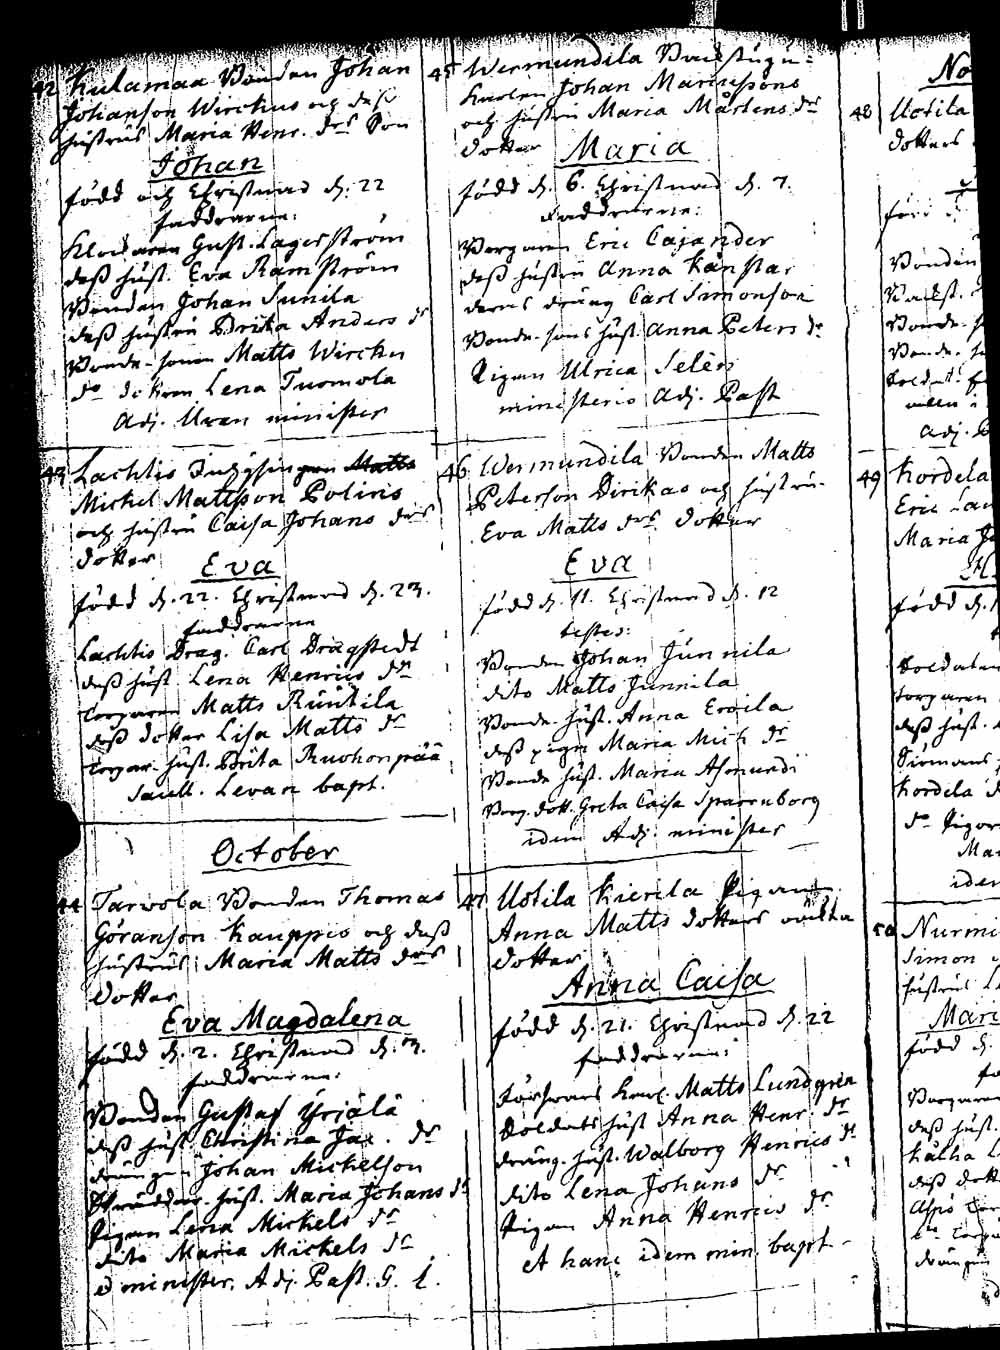 42 Kulamaa Bonden Johan
Johanson Wirckus och deß
hustrus Maria Henr. drs Son
Johan
född och Christnad d. 22
faddrarne:
Klockaren Gust. Lagerström
deß hust. Eva Ramström
Bonden Johan Junila
deß hustru Brita Anders dr
Bonde-sonen Matts Wircku
do dottren Lena Tuomola
Adj. Uran minister
43 Lachtis Inhysingen Matts
Michel Mattsson Poliris
och hustru Caisa Johans drs
dotter
Eva
född d. 22. Christnad d. 23.
faddrarne
Lachtis Drag. Carl Dragstedt
deß hust Lena Henrics dr
torparen Matts Ruutila
deß dotter Lisa Matts dr
torpar. hust. Brita Ruohonpää
Levan bapt.
October
44 Tarvola Bonden Thomas
Göranson Kauppis och deß
hustrus Maria Matts drs
dotter
Eva Magdalena
född d. 2. Christnad d. 3.
faddrarne:
Bonden Gustaf Yrjälä
deß hust Christina Jac. dr
drängen Johan Michelson
Skräddar. hust. Maria Johans dr
Pigan Lena Michels dr
dito Maria Michels dr
minister. Adj. Past. G. L.
45 Wermundila
Karlen Johan Mariussons
och hustru Maria Mårtens drs
dotter Maria
född d. 6. Christnad d. 7.
Faddrarne:
Borgaren Eric Cajander
deß hustru Anna Känstar
deras dräng Carl Simonson
Bonde-sons hust. Anna Peters dr
Pigan Ulrica Selèn
ministerio Adj. Past
46 Wermundila Bonden Matts
Peterson Dirikas och hustrus
Eva Matts drs dotter
Eva
född d. 11. Christnad d. 12
testes:
Bonden Johan Junnila
dito Matts Junnila
Bonde. hust. Anna Eroila
deß piga Maria Mich dr
Bonde hust. Maria Asmundi
Borg. dott. Greta Caisa Sparrnborg
idem Adj. minister
47 Uotila Kierila Pigan
Anna Matts dotters oäckta
dotter
Anna Caisa
född d. 21. Christnad d. 22
faddrarne:
Matts Lundgrén
Soldats hust Anna Henr. dr
dräng. hust. Walborg Henrics dr
dito Lena Johans dr
Pigan Anna Henrics dr
et hanc idem min. bapt
No
48 Uotila
dotters
född d.
Bonden
Bonde. h
Adj. P
49 Kordela
Eric Lau
Maria Jo
född d. 1
Soldaten
torparen
deß hust.
Kordela
do Pigor
Mar
idem
50 Nurmi
Simon
hustrus
Mari
född d.
Borgaren
deß hust.
deß dott